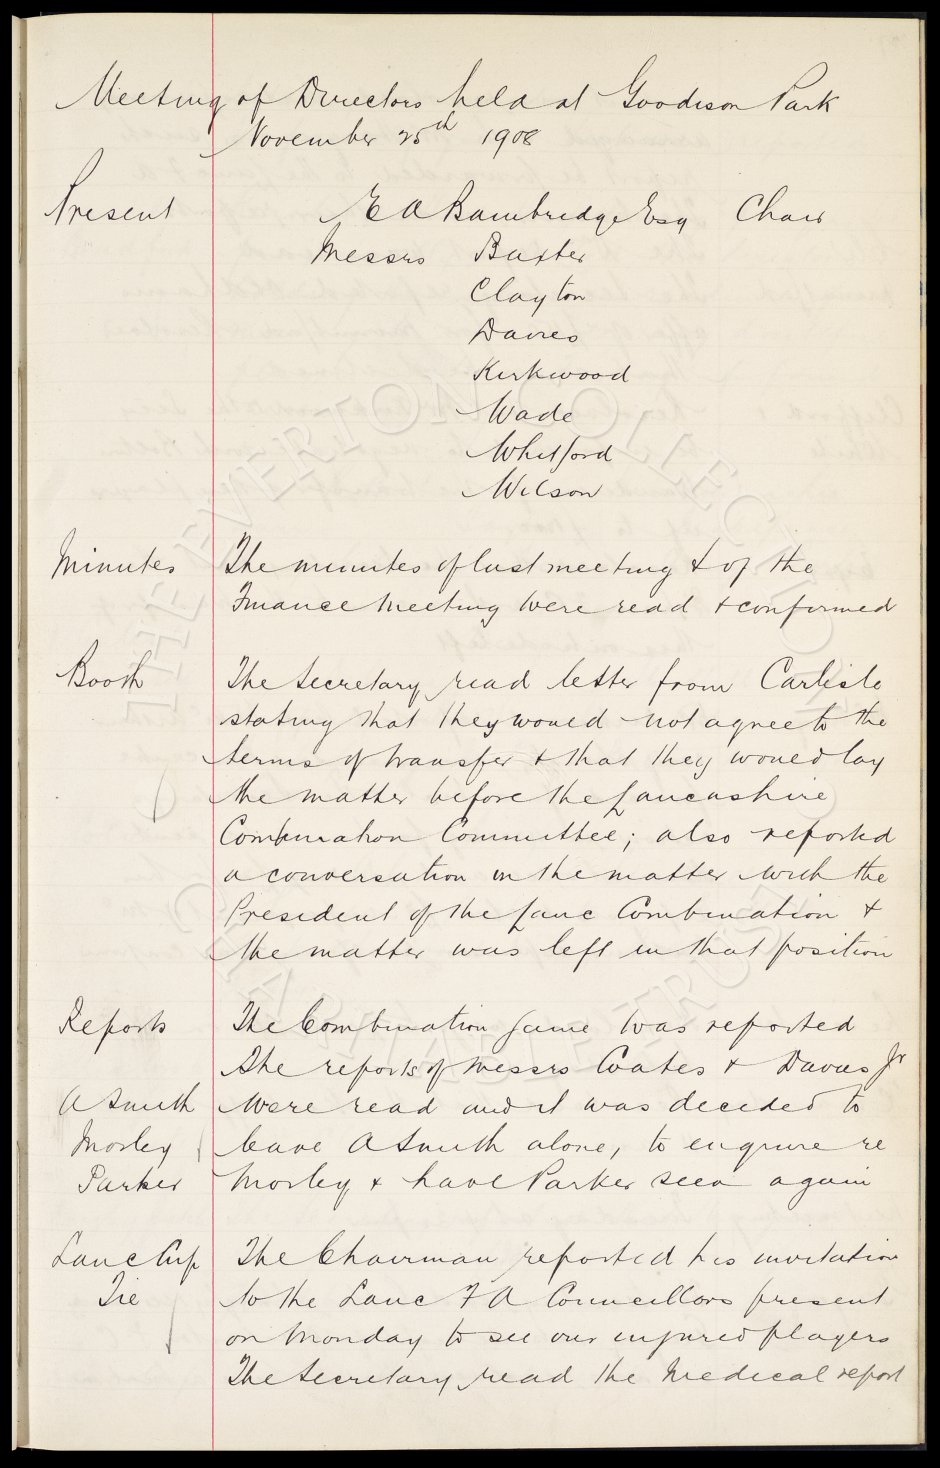 Meeting of Directors held at Goodison Park
November 25th 1908
Present E A Bambridge Esq Chair
Messrs Baxter
Clayton
Davies
Kirkwood
Wade
Whitford
Wilson
Minutes The minutes of last meeting & of the
Finance Meeting were read & confirmed
Booth The Secretary read letter from Carlisle
stating that they would not agree to the
terms of transfer & that they would lay
the matter before the Lancashire
Combination Committee; also reported
a conversation on the matter with the
President of the Lanc Combination &
the matter was left in that position
Reports The Combination Game was reported
The reports of Messrs Coates & Davies Jr
A Smith were read and it was decided to
Morley leave A Smith alone, to enquire re
Parker Morley & have Parker seen again
Lanc Cup The Chairman reported his invitation
Tie to the Lanc F A Councillors present
on Monday to see our injured players
The Secretary read the Medical report
THE EVERTON COLLECTION
CHARITABLE TRUST